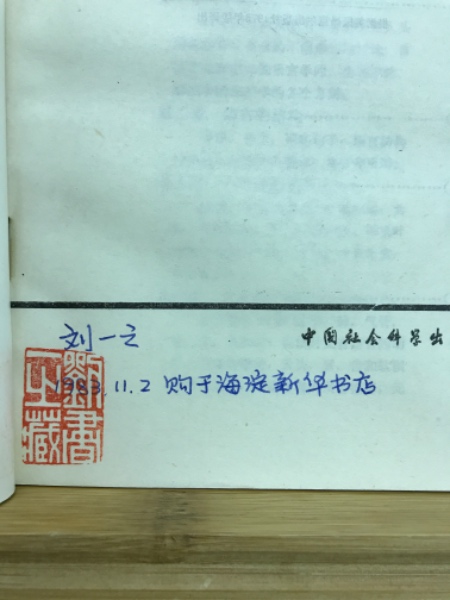 刘一之
中国社会科学出
1983.11.2 购于海淀新华书店
劉書
之藏